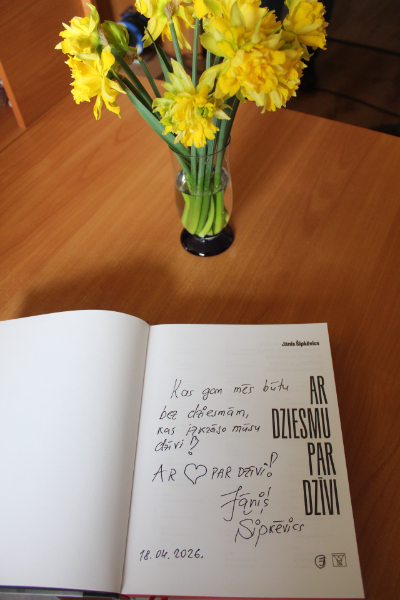 Jānis Šipkēvics
Kas gan mēs būtu
bez dziesmām,
kas izkrāso mūsu
dzīvi!?
AR ♡ PAR DZĪVI!
Jānis
Šipkēvics
18.04.2026.
AR
DZIESMU
PAR
DZĪVI